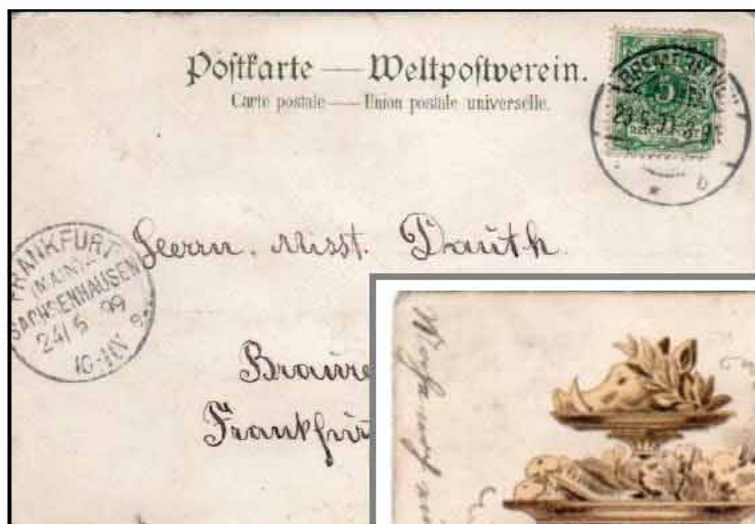 Postkarte — Weltpostverein.
Carte postale — Union postale universelle.
BREMERHAVEN
5
b
FRANKFURT
(MAIN)
SACHSENHAUSEN
24/5 99
10-11V
Herrn. Dauth.
Braure
Frankfurt